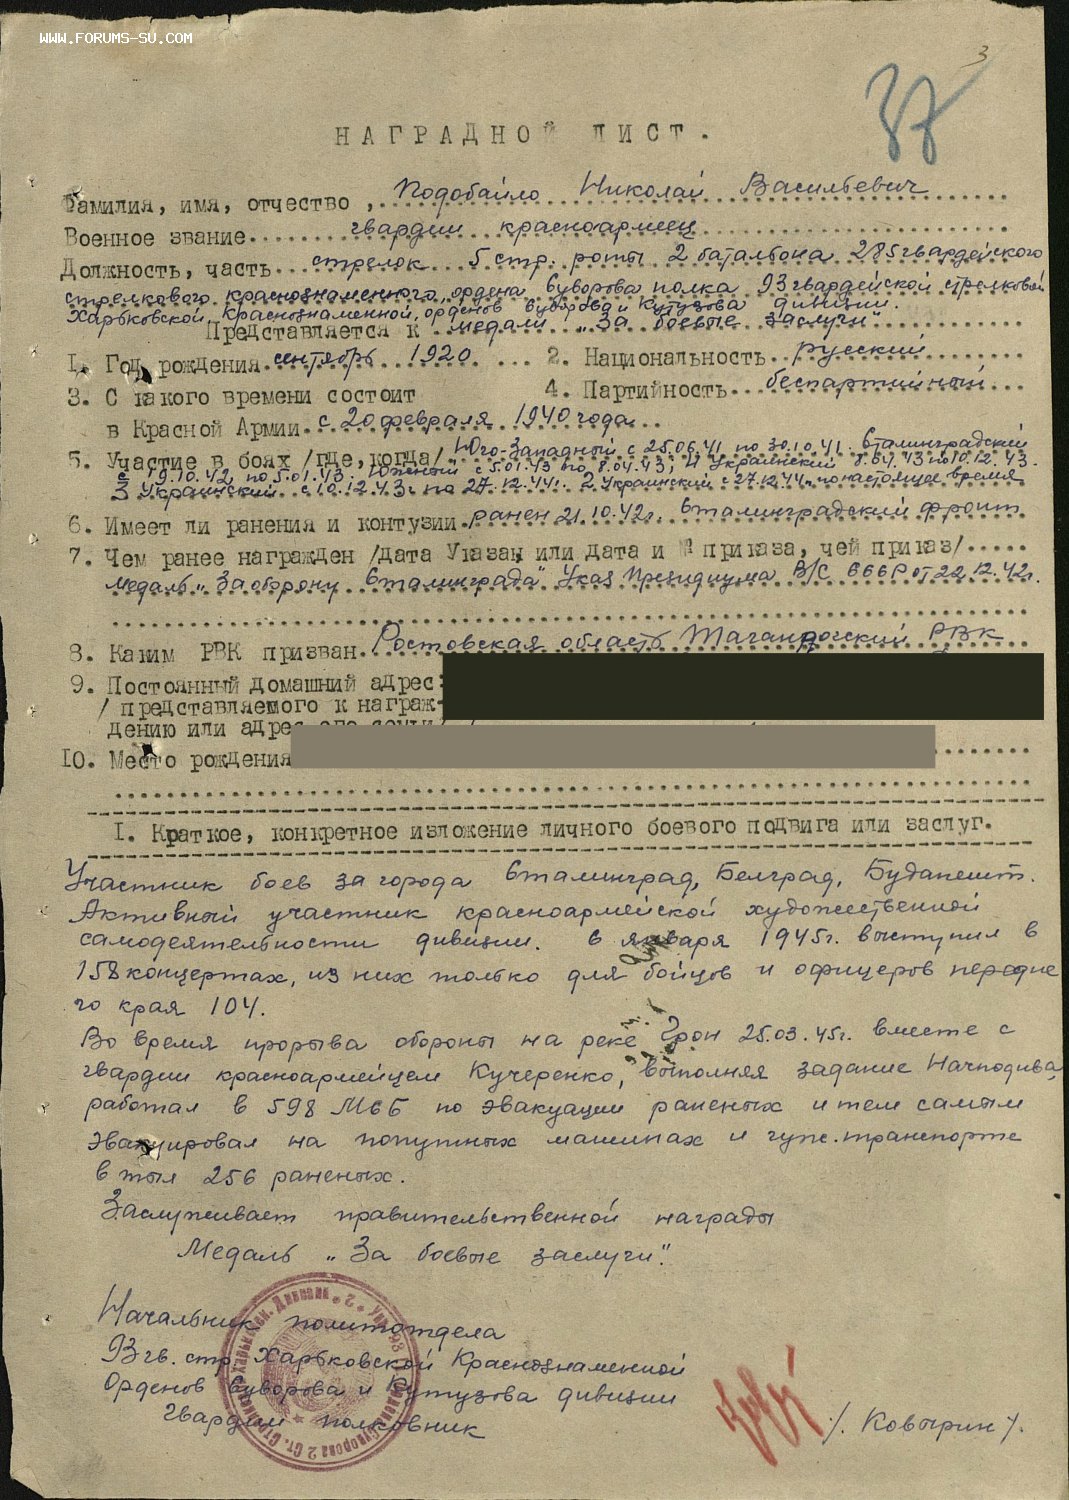 WWW.FORUMS-SU.COM
3
37
НАГРАДНОЙ ЛИСТ.
Фамилия, имя, отчество, Подобайло Николай Васильевич
Военное звание гвардии красноармеец
Должность, часть стрелок 5 стр. роты 2 батальона 285 гвардейского
стрелкового краснознаменного, ордена Суворова полка 93 гвардейской стрелковой
Харьковской, Краснознаменной, орденов Суворова и Кутузова дивизии.
Представляется к медали „За боевые заслуги"
1. Год рождения сентябрь 1920. 2. Национальность русский
3. С какого времени состоит 4. Партийность беспартийный
в Красной Армии с 20 февраля 1940 года
5. Участие в боях /где, когда/ Юго-Западный с 25.06.41 по 30.10.41. Сталинградский
с 19.10.42 по 5.01.43. Южный с 5.01.43 по 8.04.43; Украинский 8.04.43 по 10.12.43.
3 Украинский с 10.12.43 по 27.12.44г. 2 Украинский с 27.12.44 по настоящее время
6. Имеет ли ранения и контузии ранен 21.10.42г. Сталинградский фронт
7. Чем ранее награжден /дата Указан или дата и № приказа, чей приказ/
медаль „За оборону Сталинграда" Указ Президиума В/С СССР от 22.12.42г.
8. Каким РВК призван Ростовская область Таганрогский РВК
9. Постоянный домашний адрес:
/ представляемого к награж-
дению или адрес его семьи/
10. Место рождения
1. Краткое, конкретное изложение личного боевого подвига или заслуг.
Участник боев за города Сталинград, Белград, Будапешт.
Активный участник красноармейской художественной
самодеятельности дивизии. В января 1945г. выступил в
158 концертах, из них только для бойцов и офицеров передне
го края 104.
Во время прорыва обороны на реке Грон 25.03.45г. вместе с
гвардии красноармейцем Кучеренко, выполняя задание Начподива,
работал в 598 МСБ по эвакуации раненых и тем самым
эвакуировал на попутных машинах и гуж.транспорте
в тыл 256 раненых.
Заслуживает правительственной награды
Медаль „За боевые заслуги".
Начальник политотдела
93 гв. стр. Харьковской Краснознаменной
Орденов Суворова и Кутузова дивизии
Гвардии полковник /. Ковырин /.